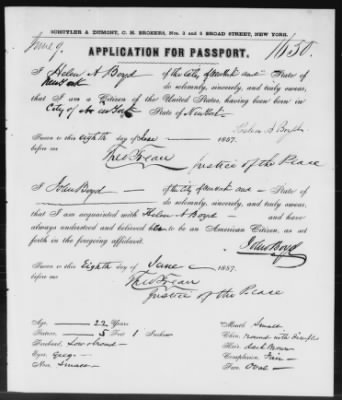 SCHUYLER & DUMONT, C. H. BROKERS, Nos. 2 and 3 BROAD STREET, NEW YORK.
June 9. 1650.
APPLICATION FOR PASSPORT.
I Helen A Boyd of the City of New York and State of
New York do solemnly, sincerely, and truly swear,
that I am a Citizen of the United States, having been born in
City of New York State of New York
Helen A Boyd
Sworn to this eighth day of June 1857.
before me
Justice of the Peace
I John Boyd of the City of New York and State of
do solemnly, sincerely, and truly swear,
that I am acquainted with Helen A Boyd and have
always understood and believed her to be an American Citizen, as set
forth in the foregoing affidavit.
John Boyd
Sworn to this Eighth day of June 1857.
before me
Justice of the Peace
Age, 22 Years
Stature, 5 Feet 1 Inches
Forehead, Low & broad
Eyes, Grey
Nose, Small
Mouth, Small
Chin, Round with Dimple
Hair, dark Brown
Complexion, Fair
Face, Oval